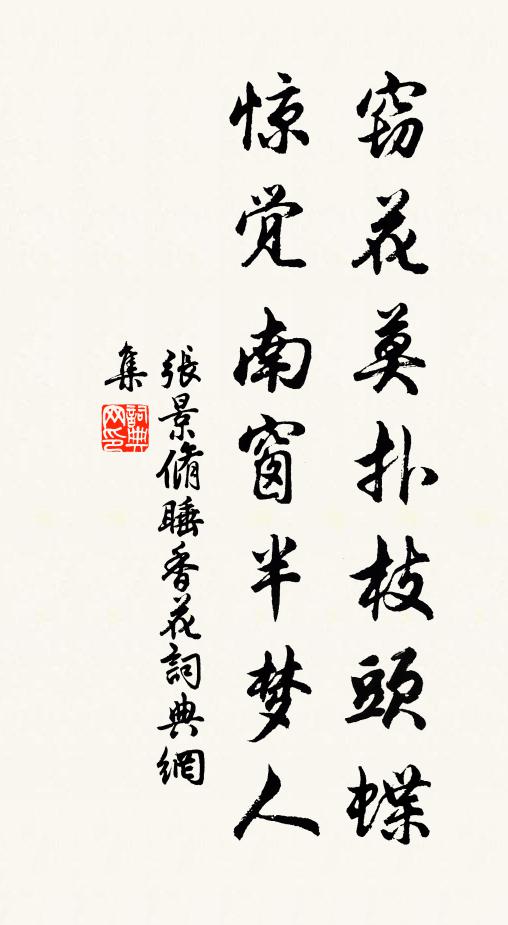 窃花莫扑枝頭蝶
惊觉南窗半梦人
張景脩睡香花詞典網
集
詞典
网印